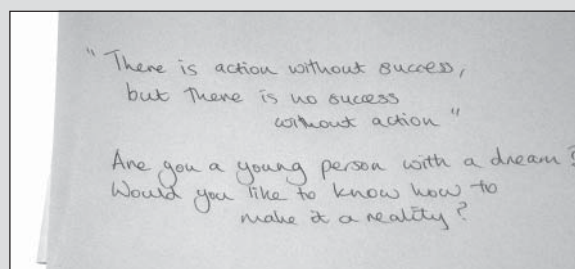 "There is action without success,
but there is no success
without action"
Are you a young person with a dream?
Would you like to know how to
make it a reality?